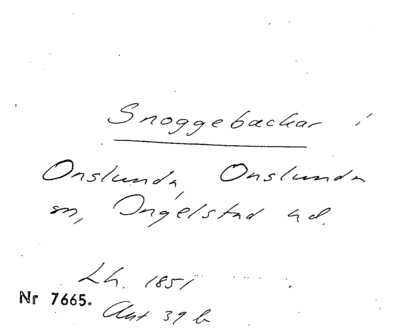 Snoggebackar i
Onslunda, Onslunda
sn, Ingelstad hd.
Lh. 1851
Nr 7665.
Akt 39 b